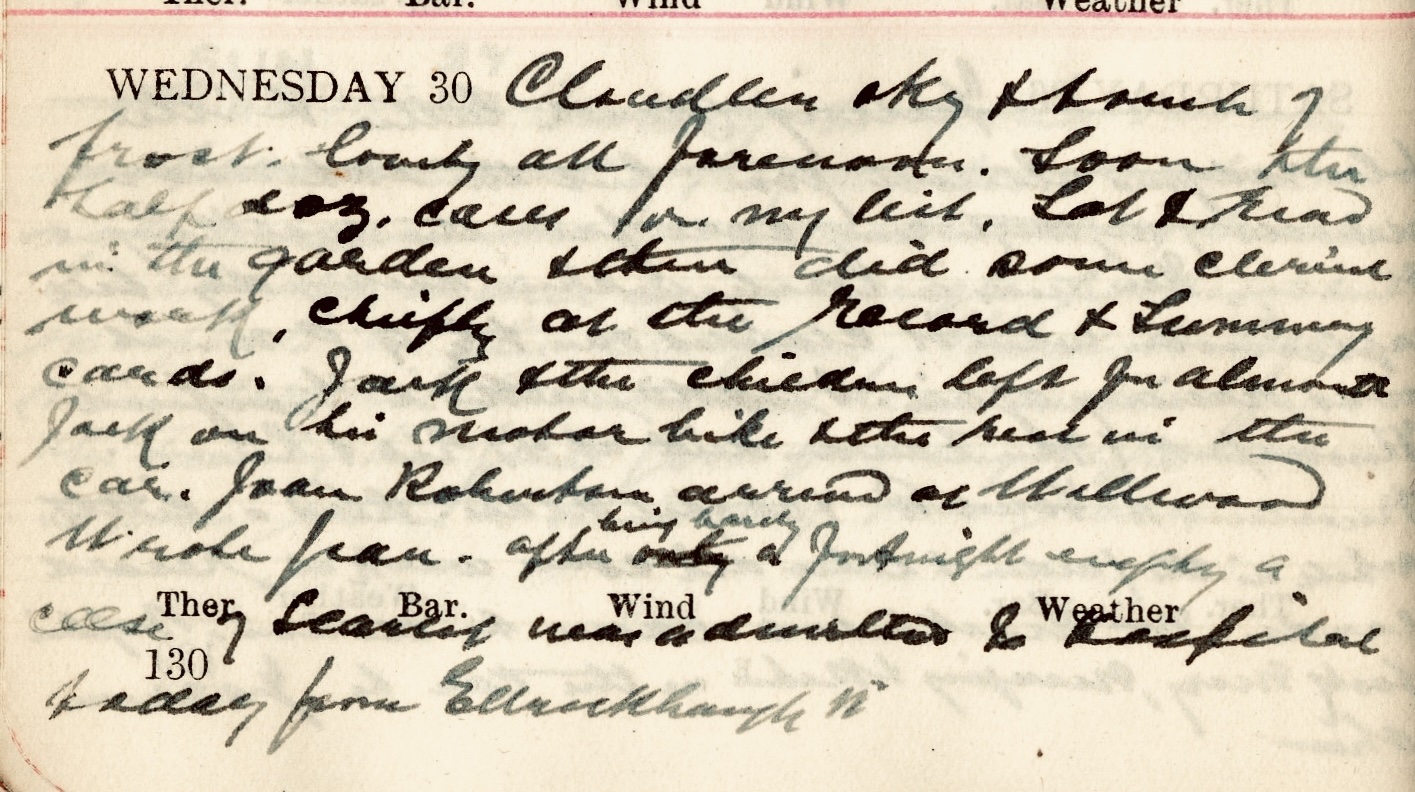 Ther. Bar. Wind Weather
WEDNESDAY 30 Cloudless sky & touch of
frost. Lovely all forenoon. Soon thro
half doz. calls for my list. Sat & read
in the garden & then did some clerical
work, chiefly at the Record & Summary
cards. Jack & the children left for
Jack on his motor bike & the rest in the
car. Joan Robertson arrived at Wellwood
Wrote Jean. after being barely a fortnight empty a
case of Scarlet was admitted to Hospital
Ther. Bar. Wind Weather
130
today from